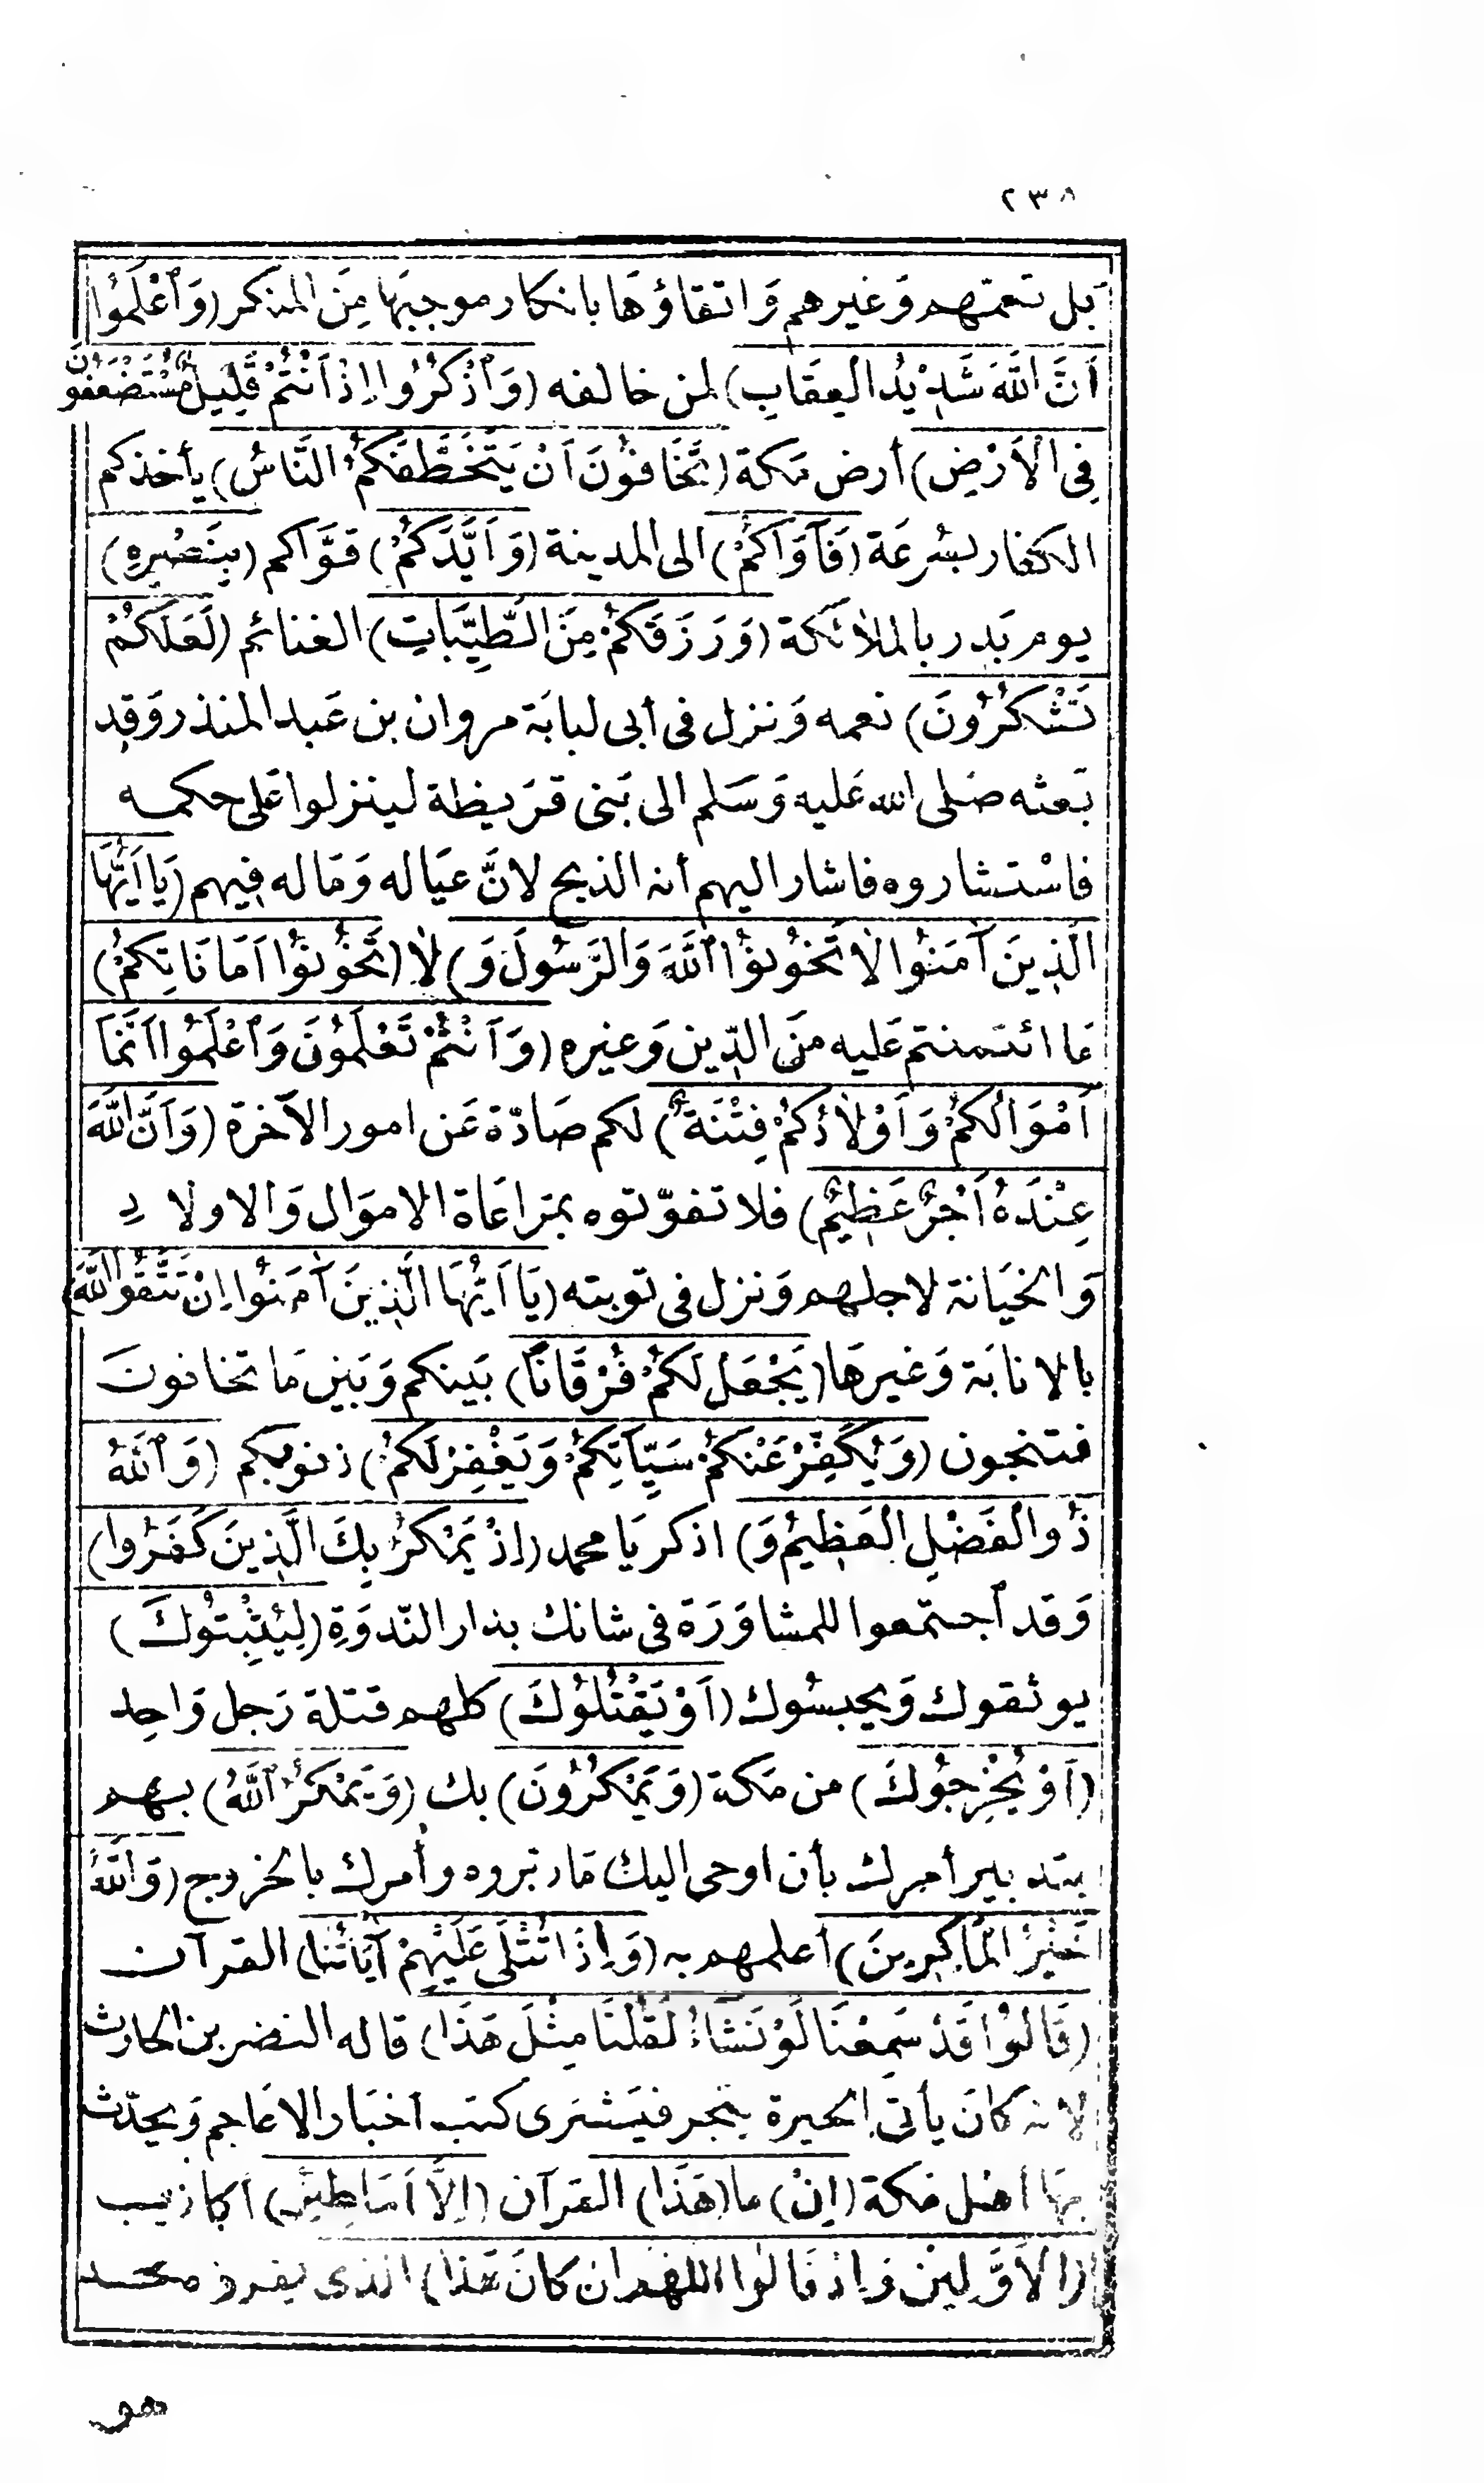 ٢٣٨
بل تعمّهم وَغيرهم وَاتقاؤهَا بانكار موجبهَا مِنَ المنكر (وَٱعْلَمُوا
اَنَّ اللَّهَ شَدِيْدُ العِقَابِ) لمن خالفه (وَٱذْكُرُوا اِذْ اَنْتُمْ قَلِيْلٌ مُسْتَضْعَفُونَ
فِى الْاَرْضِ) أرض مَكة (تَخَافُوْنَ اَنْ يَتَخَطَّفَكُمُ النَّاسُ) يأخذكم
الكفار بسُرعَة (فَآوَاكُمْ) الى المدينة (وَاَيَّدَكُمْ) قوَّاكم (بِنَصْرِهِ)
يوم بَدر بالملائكة (وَرَزَقَكُمْ مِنَ الطَّيِّبَاتِ) الغنائم (لَعَلَّكُمْ
تَشْكُرُوْنَ) نعمه وَنزل فى أبى لبابَة مروان بن عَبد المنذر وَقد
بَعثه صَلى الله عَليه وَسَلم الى بَنى قرَيظة لينزلوا عَلى حكمه
فاسْتشاروه فاشار اليهم أنه الذبح لانَّ عيَاله وَمَاله فيهم (يَا اَيُّهَا
الَّذِينَ آمَنُوا لَا تَخُوْنُوْا ٱللَّهَ وَالرَّسُولَ وَ) لَا (تَخُوْنُوْا اَمَانَاتِكُمْ)
مَا ائتمنتم عَليه مِنَ الدّين وَغيرهِ (وَاَنْتُمْ تَعْلَمُوْنَ وَٱعْلَمُوْا اَنَّمَا
اَمْوَالُكُمْ وَاَوْلَادُكُمْ فِتْنَةٌ) لكم صَادّة عَن امور الآخرة (وَاَنَّ اللَّهَ
عِنْدَهُ اَجْرٌ عَظِيْمٌ) فلا تفوّتوه بمرَاعَاة الامَوال وَالاولاد
وَالخيَانة لاجلهم وَنزل فى توبته (يَا اَيُّهَا الَّذِينَ آمَنُوا اِنْ تَتَّقُوا اللَّهَ)
بالانابَة وَغيرهَا (يَجْعَلْ لَكُمْ فُرْقَانًا) بَينكم وَبَين مَا تخافونَ
فتنجون (وَيُكَفِّرْ عَنْكُمْ سَيِّآتِكُمْ وَيَغْفِرْ لَكُمْ) ذنوبكم (وَٱللَّهُ
ذُو الْفَضْلِ الْعَظِيْمِ وَ) اذكر يَا محمد (اِذْ يَمْكُرُ بِكَ الَّذِينَ كَفَرُوا)
وَقد ٱجتمعوا للمشاوَرَة فى شانك بدار النّدوَةِ (لِيُثْبِتُوكَ)
يوثقوك وَيحبسُوك (اَوْ يَقْتُلُوْكَ) كلهم قتلة رَجل وَاحِد
(اَوْ يُخْرِجُوْكَ) من مَكة (وَيَمْكُرُوْنَ) بك (وَيَمْكُرُ ٱللَّهُ) بهم
بتدبير أمرك بأن اوحى اليك مَا دبّروه وأمرك بالخروج (وَاللَّهُ
خَيْرُ الْمَاكِرِينَ) أعلمهم به (وَاِذَا تُتْلَى عَلَيْهِمْ آيَاتُنَا) القرآن
(قَالُوْا قَدْ سَمِعْنَا لَوْ نَشَآءُ لَقُلْنَا مِثْلَ هَذَا) قاله النضر بن الحارث
لانه كانَ يأتى الحيرة يتجر فيَشترى كتب أخبَار الاعَاجم وَيحدّث
بهَا أهل مَكة (اِنْ) ما (هَذَا) القرآن (اِلَّا اَسَاطِيْرُ) أكاذيب
الْاَوَّلِيْنَ وَاِذْ قَالُوا اللهم ان كانَ هَذَا) الذى يقرؤه محمد
هو